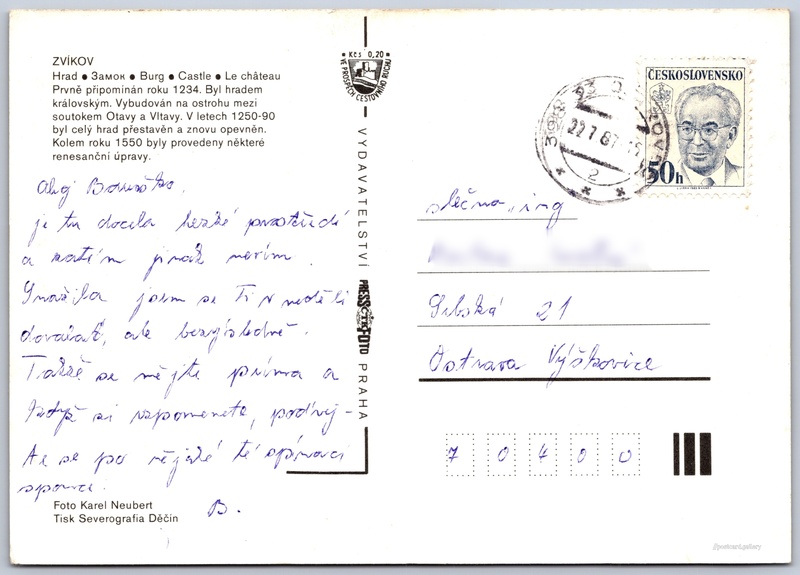 ZVÍKOV
Hrad ● Замок ● Burg ● Castle ● Le château
Prvně připomínán roku 1234. Byl hradem
královským. Vybudován na ostrohu mezi
soutokem Otavy a Vltavy. V letech 1250-90
byl celý hrad přestavěn a znovu opevněn.
Kolem roku 1550 byly provedeny některé
renesanční úpravy.
Ahoj
je tu docela hezké prostředí
a zatím jinak nevím.
Snažila jsem se Ti v neděli
dovolat, ale bezvýsledně.
Takže se mějte prima a
když si vzpomenete,
Ae se po nějaké té
B.
Foto Karel Neubert
Tisk Severografia Děčín
Kčs 0,20
VE PROSPĚCH CESTOVNÍHO RUCHU
VYDAVATELSTVÍ PRESSFOTO PRAHA
ČTK
398
22.7.87
2
ČESKOSLOVENSKO
50h
slečna „ing
Srbská 21
Ostrava Výškovice
70400
postcard.gallery